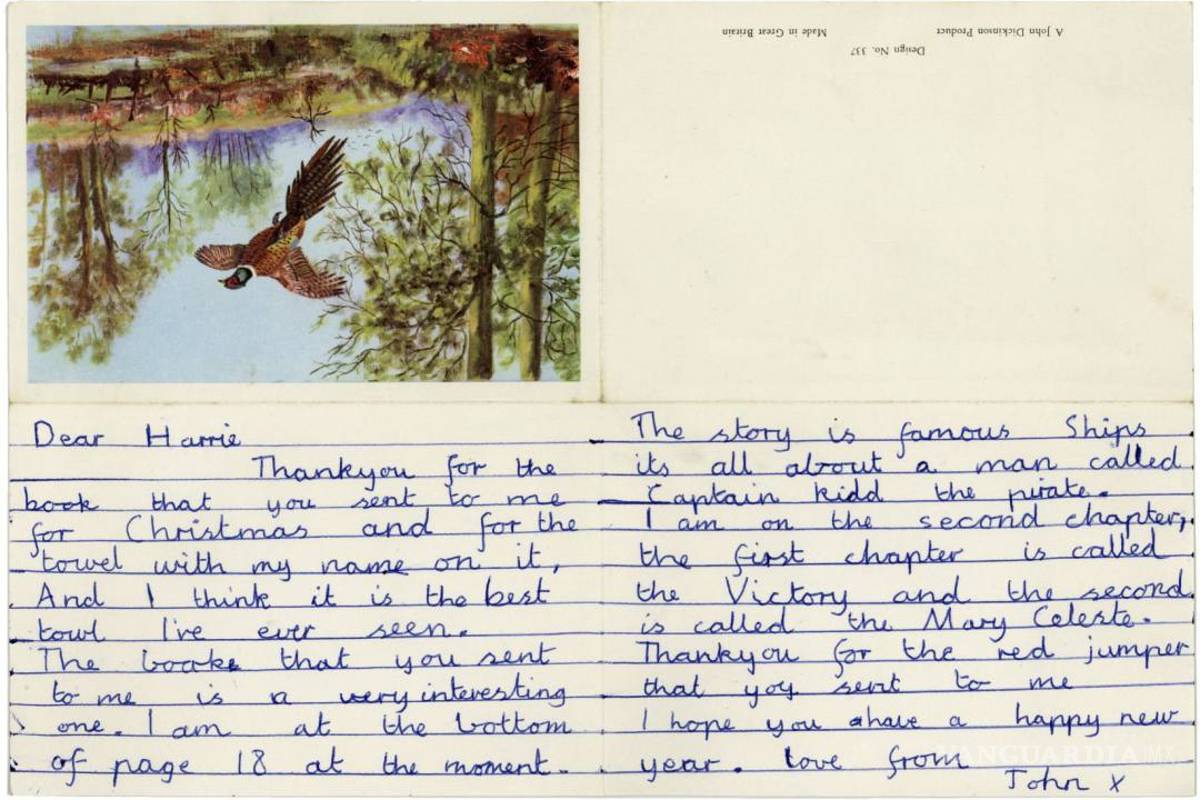 A John Dickinson Product
Made in Great Britain
Design No. 337
Dear Harrie
Thankyou for the
book that you sent to me
for Christmas and for the
towel with my name on it,
And I think it is the best
towl I've ever seen.
The booke that you sent
to me is a very interesting
one. I am at the bottom
of page 18 at the moment.
The story is famous Ships
its all about a man called
Captain kidd the pirate.
I am on the second chapter,
the first chapter is called
the Victory and the second
is called the Mary Celeste.
Thankyou for the red jumper
that yoy sent to me
I hope you ahave a happy new
year. love from
John x
VANGUARDIA MX